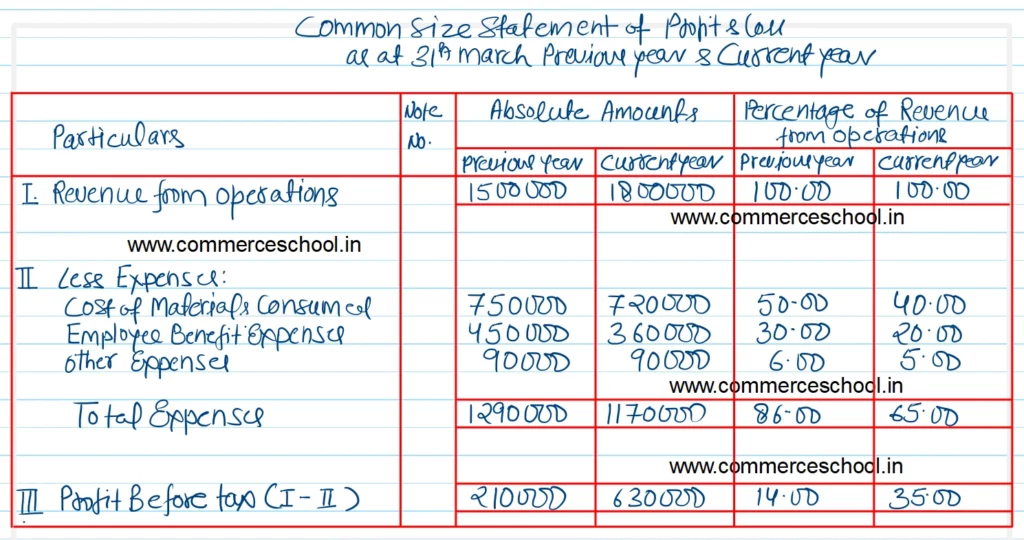 Common Size Statement of Profit & Loss
as at 31th march Previous year & Current year
Particulars Note No. Absolute Amounts Percentage of Revenue from operations
Previous year Current year Previous year Current year
I. Revenue from operations 1500000 1800000 100.00 100.00
www.commerceschool.in
www.commerceschool.in
II Less Expenses:
Cost of Materials Consumed 750000 720000 50.00 40.00
Employee Benefit Expenses 450000 360000 30.00 20.00
other Expenses 90000 90000 6.00 5.00
www.commerceschool.in
Total Expenses 1290000 1170000 86.00 65.00
www.commerceschool.in
III Profit Before tax (I - II) 210000 630000 14.00 35.00